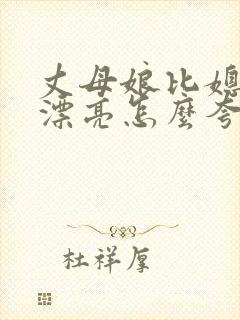 丈母娘比媳
漂亮怎麼夸
杜祥厚